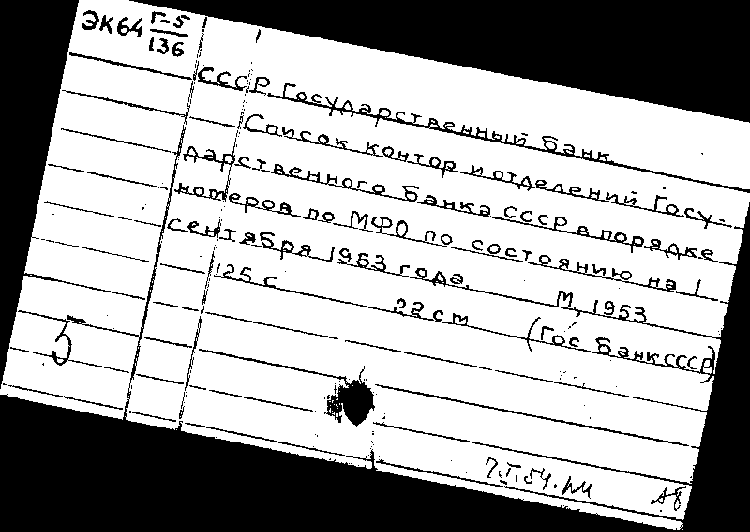 ЭК64 Г-5/136
СССР. Государственный банк.
Список контор и отделений Госу-
дарственного банка СССР в порядке
номеров по МФО по состоянию на 1
сентября 1953 года. М, 1953
125 с 22 см (Гос Банк СССР)
5
7.I.54.
А8